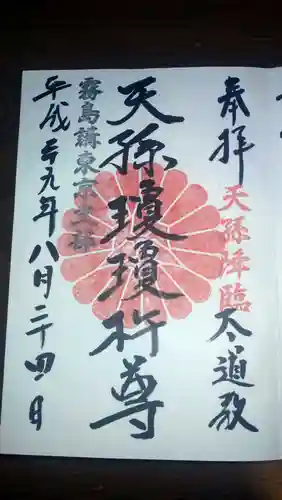 奉拝
天孫降臨
太道教
天孫瓊瓊杵尊
霧島講東京本部
平成二十九年八月二十四日